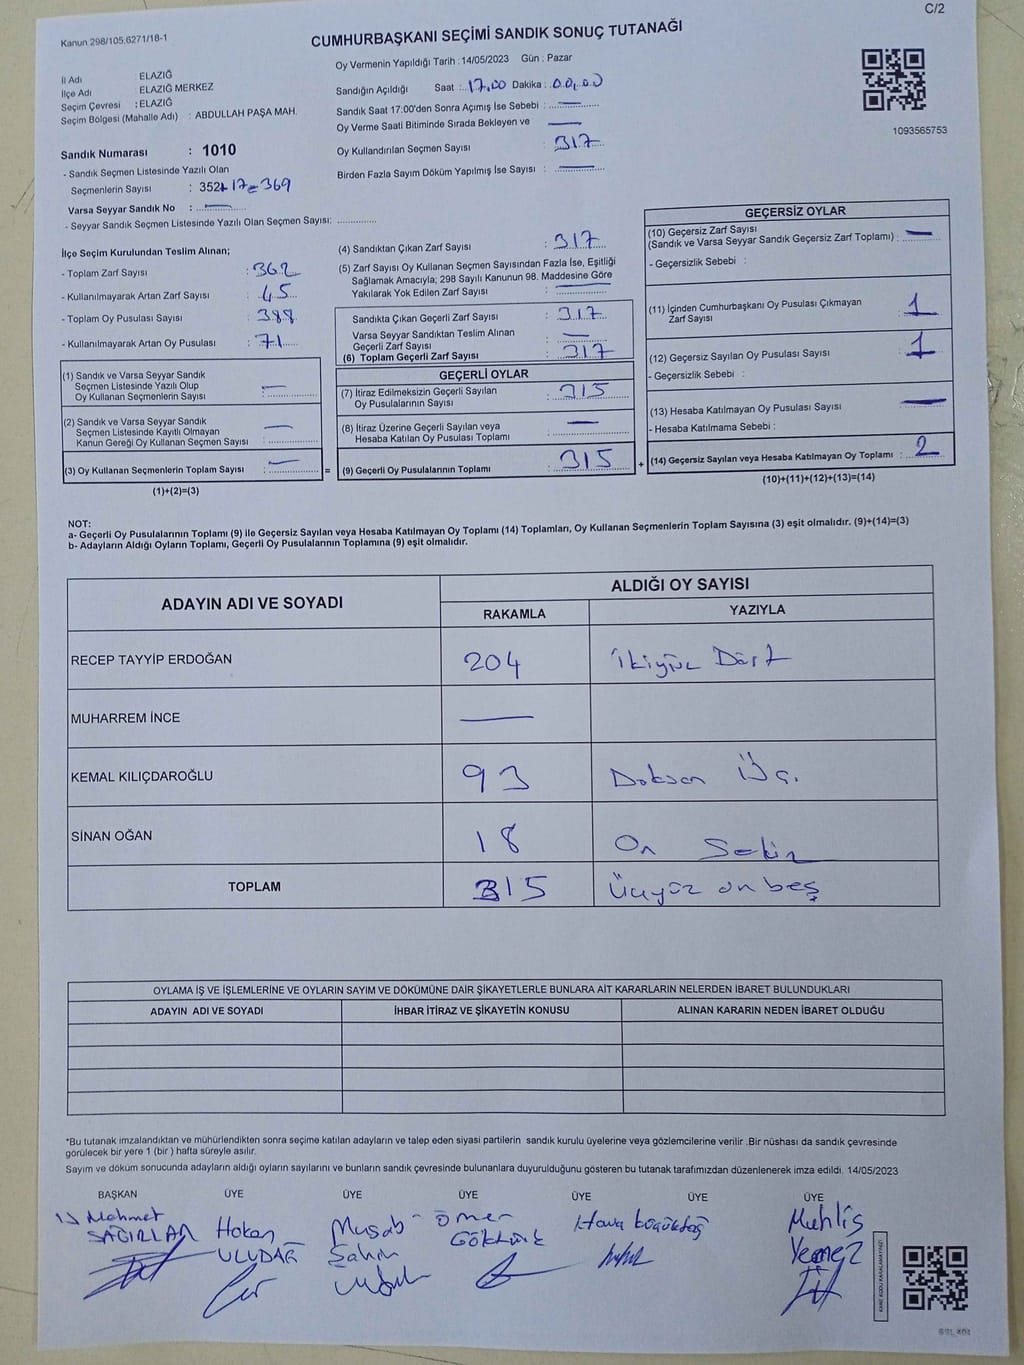 C/2
Kanun 298/105,6271/18-1
CUMHURBAŞKANI SEÇİMİ SANDIK SONUÇ TUTANAĞI
İl Adı : ELAZIĞ
İlçe Adı : ELAZIĞ MERKEZ
Seçim Çevresi : ELAZIĞ
Seçim Bölgesi (Mahalle Adı) : ABDULLAH PAŞA MAH.
Sandık Numarası : 1010
- Sandık Seçmen Listesinde Yazılı Olan
Seçmenlerin Sayısı : 352+17=369
Varsa Seyyar Sandık No :
- Seyyar Sandık Seçmen Listesinde Yazılı Olan Seçmen Sayısı:
Oy Vermenin Yapıldığı Tarih : 14/05/2023 Gün : Pazar
Sandığın Açıldığı Saat : 17.00 Dakika : 00.00
Sandık Saat 17:00'den Sonra Açımış İse Sebebi :
Oy Verme Saati Bitiminde Sırada Bekleyen ve
Oy Kullandırılan Seçmen Sayısı : 317
Birden Fazla Sayım Döküm Yapılmış İse Sayısı :
1093565753
İlçe Seçim Kurulundan Teslim Alınan;
- Toplam Zarf Sayısı : 362
- Kullanılmayarak Artan Zarf Sayısı : 45
- Toplam Oy Pusulası Sayısı : 388
- Kullanılmayarak Artan Oy Pusulası : 71
(1) Sandık ve Varsa Seyyar Sandık
Seçmen Listesinde Yazılı Olup
Oy Kullanan Seçmenlerin Sayısı :
(2) Sandık ve Varsa Seyyar Sandık
Seçmen Listesinde Kayıtlı Olmayan
Kanun Gereği Oy Kullanan Seçmen Sayısı :
(3) Oy Kullanan Seçmenlerin Toplam Sayısı : =
(1)+(2)=(3)
(4) Sandıktan Çıkan Zarf Sayısı : 317
(5) Zarf Sayısı Oy Kullanan Seçmen Sayısından Fazla İse, Eşitliği
Sağlamak Amacıyla; 298 Sayılı Kanunun 98. Maddesine Göre
Yakılarak Yok Edilen Zarf Sayısı :
Sandıkta Çıkan Geçerli Zarf Sayısı : 317
Varsa Seyyar Sandıktan Teslim Alınan
Geçerli Zarf Sayısı :
(6) Toplam Geçerli Zarf Sayısı : 317
GEÇERLİ OYLAR
(7) İtiraz Edilmeksizin Geçerli Sayılan
Oy Pusulalarının Sayısı : 315
(8) İtiraz Üzerine Geçerli Sayılan veya
Hesaba Katılan Oy Pusulası Toplamı :
(9) Geçerli Oy Pusulalarının Toplamı : 315 +
GEÇERSİZ OYLAR
(10) Geçersiz Zarf Sayısı
(Sandık ve Varsa Seyyar Sandık Geçersiz Zarf Toplamı) :
- Geçersizlik Sebebi :
(11) İçinden Cumhurbaşkanı Oy Pusulası Çıkmayan
Zarf Sayısı : 1
(12) Geçersiz Sayılan Oy Pusulası Sayısı : 1
- Geçersizlik Sebebi :
(13) Hesaba Katılmayan Oy Pusulası Sayısı :
- Hesaba Katılmama Sebebi :
(14) Geçersiz Sayılan veya Hesaba Katılmayan Oy Toplamı : 2
(10)+(11)+(12)+(13)=(14)
NOT:
a- Geçerli Oy Pusulalarının Toplamı (9) ile Geçersiz Sayılan veya Hesaba Katılmayan Oy Toplamı (14) Toplamları, Oy Kullanan Seçmenlerin Toplam Sayısına (3) eşit olmalıdır. (9)+(14)=(3)
b- Adayların Aldığı Oyların Toplamı, Geçerli Oy Pusulalarının Toplamına (9) eşit olmalıdır.
ADAYIN ADI VE SOYADI ALDIĞI OY SAYISI
RAKAMLA YAZIYLA
RECEP TAYYİP ERDOĞAN 204 ikiyüz Dört
MUHARREM İNCE
KEMAL KILIÇDAROĞLU 93 Doksan Üç.
SİNAN OĞAN 18 On Sekiz
TOPLAM 315 Üçyüz on beş
OYLAMA İŞ VE İŞLEMLERİNE VE OYLARIN SAYIM VE DÖKÜMÜNE DAİR ŞİKAYETLERLE BUNLARA AİT KARARLARIN NELERDEN İBARET BULUNDUKLARI
ADAYIN ADI VE SOYADI İHBAR İTİRAZ VE ŞİKAYETİN KONUSU ALINAN KARARIN NEDEN İBARET OLDUĞU
*Bu tutanak imzalandıktan ve mühürlendikten sonra seçime katılan adayların ve talep eden siyasi partilerin sandık kurulu üyelerine veya gözlemcilerine verilir .Bir nüshası da sandık çevresinde
görülecek bir yere 1 (bir ) hafta süreyle asılır.
Sayım ve döküm sonucunda adayların aldığı oyların sayılarını ve bunların sandık çevresinde bulunanlara duyurulduğunu gösteren bu tutanak tarafımızdan düzenlenerek imza edildi. 14/05/2023
BAŞKAN ÜYE ÜYE ÜYE ÜYE ÜYE ÜYE
Mehmet Hakan Musab Ömer Hava Küçüktağ Muhlis
SAĞIRLAR ULUDAĞ Şahin Göktürk Yemez
KARE KODU KARALAMAYINIZ!